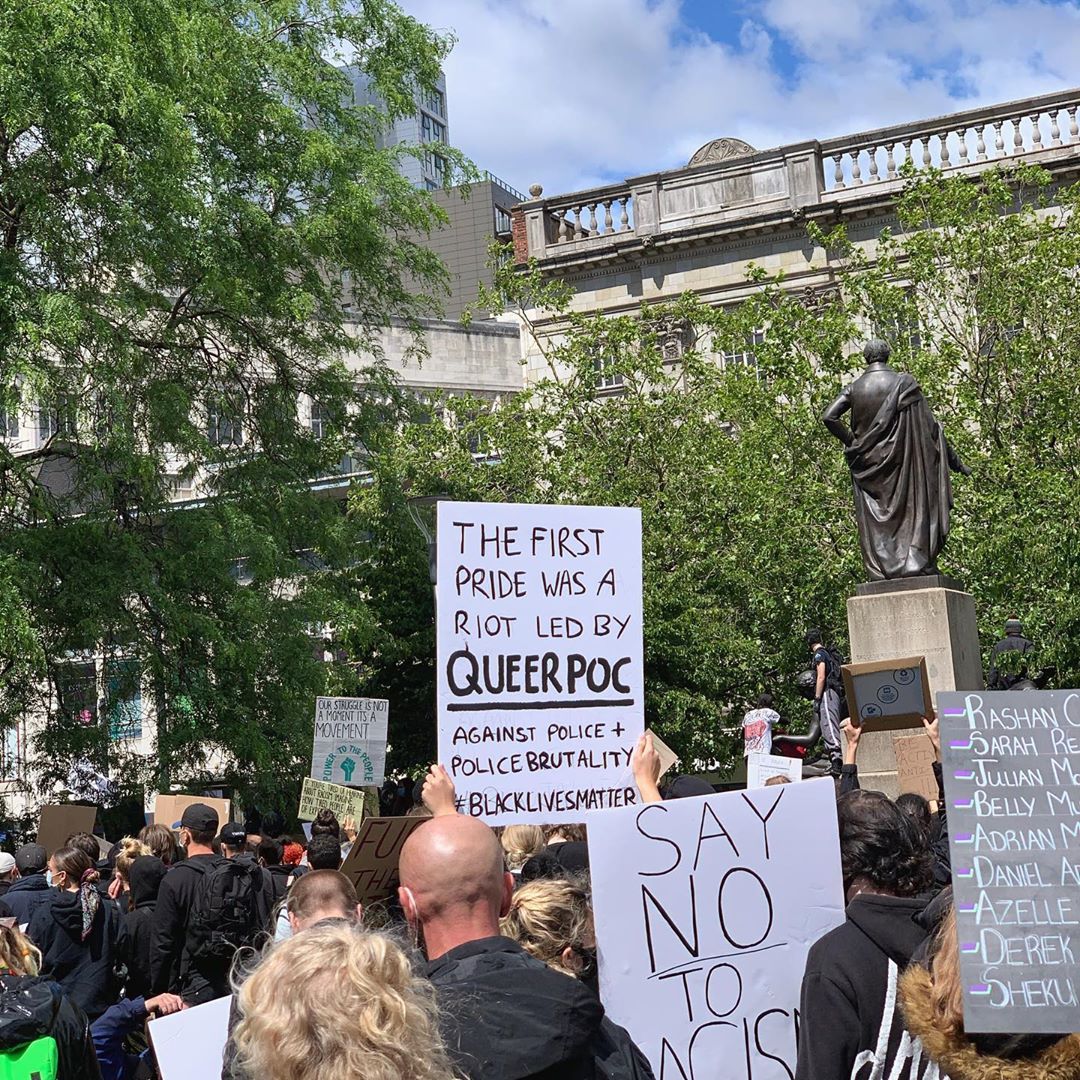 THE FIRST
PRIDE WAS A
RIOT LED BY
QUEER POC
AGAINST POLICE +
POLICE BRUTALITY
#BLACKLIVESMATTER
OUR STRUGGLE IS NOT
A MOMENT ITS A
MOVEMENT
POWER TO THE PEOPLE
SAY
NO
TO
RACISM
RASHAN
SARAH
JULIAN
BELLY
ADRIAN
DANIEL
AZELLE
DEREK
SHEKU